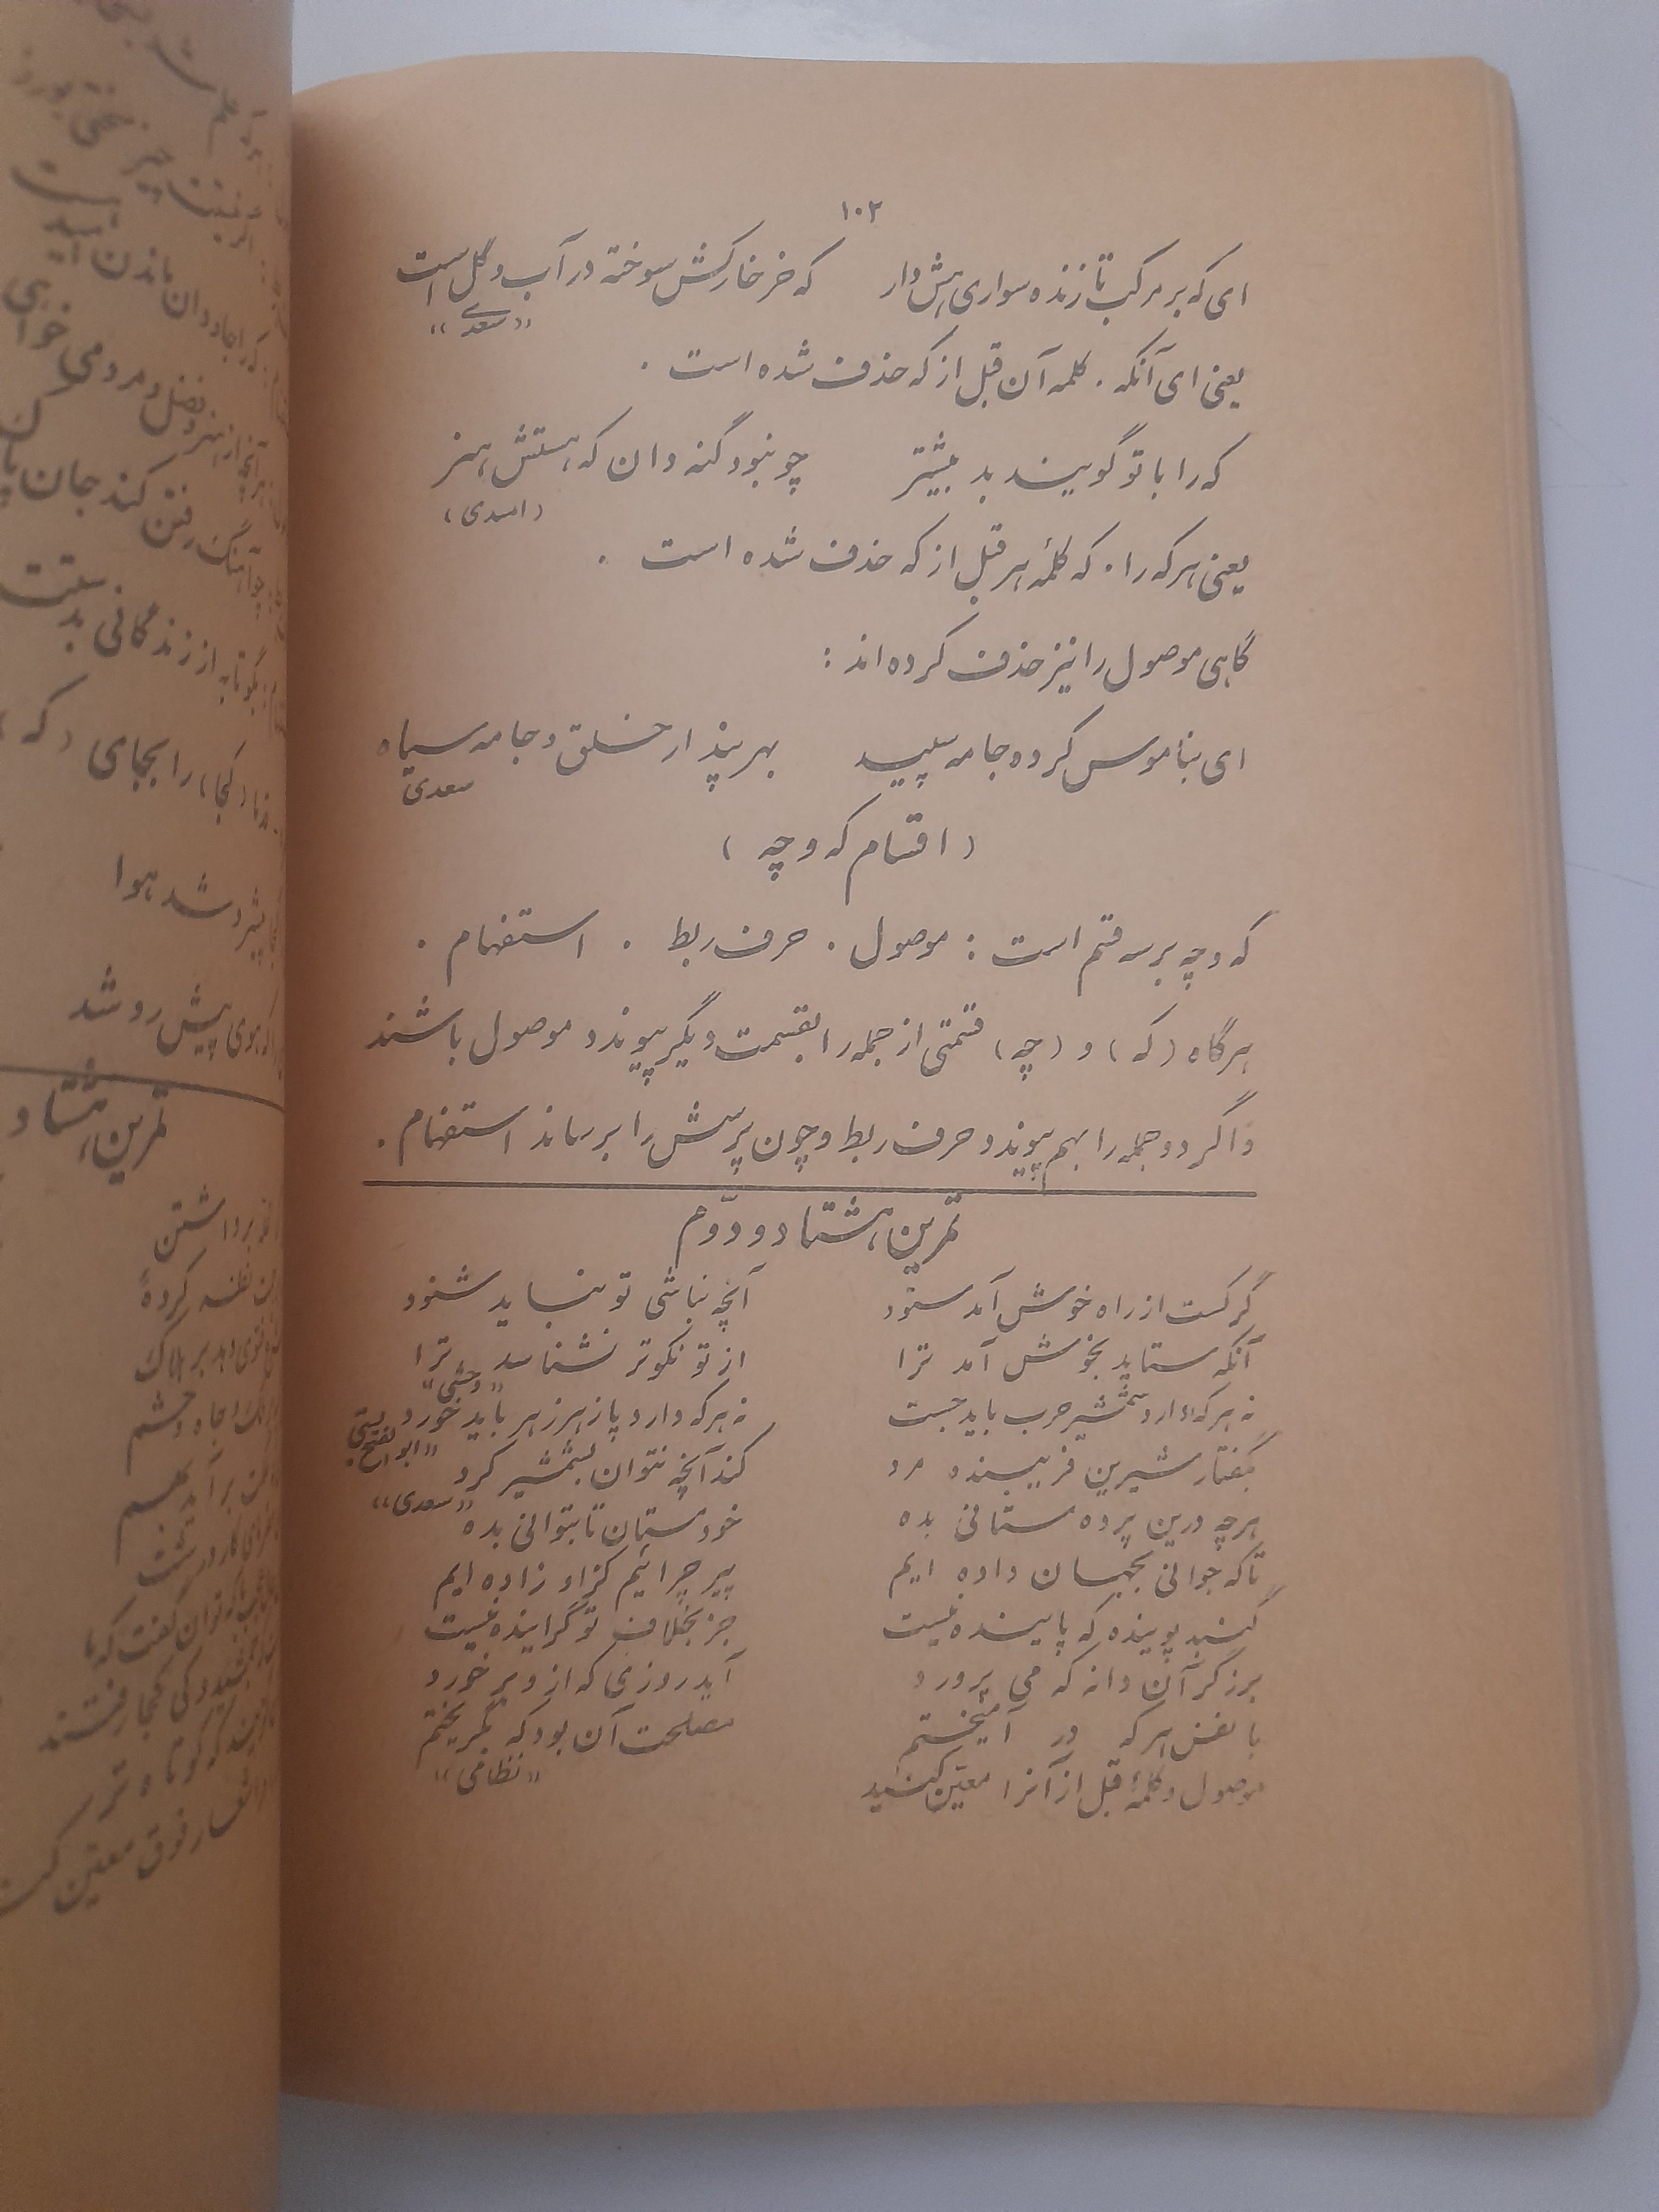 ۱۰۲
ای که بر مرکب تازنده سواری هش دار که خر خارکش سوخته در آب و گل است
«سعدی»
یعنی ای آنکه . کلمه آن قبل از که حذف شده است .
که را با تو گویند بد بیشتر چو نبود گنه دان که هستش هنر
(اسدی)
یعنی هر که را . که کلمهٔ هر قبل از که حذف شده است .
گاهی موصول را نیز حذف کرده اند :
ای بناموس کرده جامه سپید بهر پندار خلق و جامه سیاه
سعدی
( اقسام که و چه )
که و چه بر سه قسم است : موصول . حرف ربط . استفهام .
هرگاه (که) و (چه) قسمتی از جمله را بقسمت دیگر پیوندد موصول باشند
و اگر دو جمله را بهم پیوندد حرف ربط و چون پرسش را برساند استفهام .
تمرین هشتاد و دوّم
گر کست از راه خوش آمد ستود آنچه نباشی تو نباید شنود
آنکه ستاید بخوش آمد ترا از تو نکوتر نشناسد ترا
«وحشی»
نه هر که دارد شمشیر حرب باید جست نه هر که دارد پازهر زهر باید خورد
«ابوالفتح بستی»
بگفتار شیرین فریبنده مرد کند آنچه نتوان بشمشیر کرد
«سعدی»
هر چه درین پرده ستانی بده خود مستان تا بتوانی بده
تا که جوانی بجهان داده ایم پیر چرائیم کزاو زاده ایم
گنبد پوینده که پاینده نیست جز بخلاف تو گراینده نیست
برزگر آن دانه که می پرورد آید روزی که از و بر خورد
با نفس هر که در آمیختم مصلحت آن بود که بگریختم
«نظامی»
موصول و کلمهٔ قبل از آنرا معیّن کنید